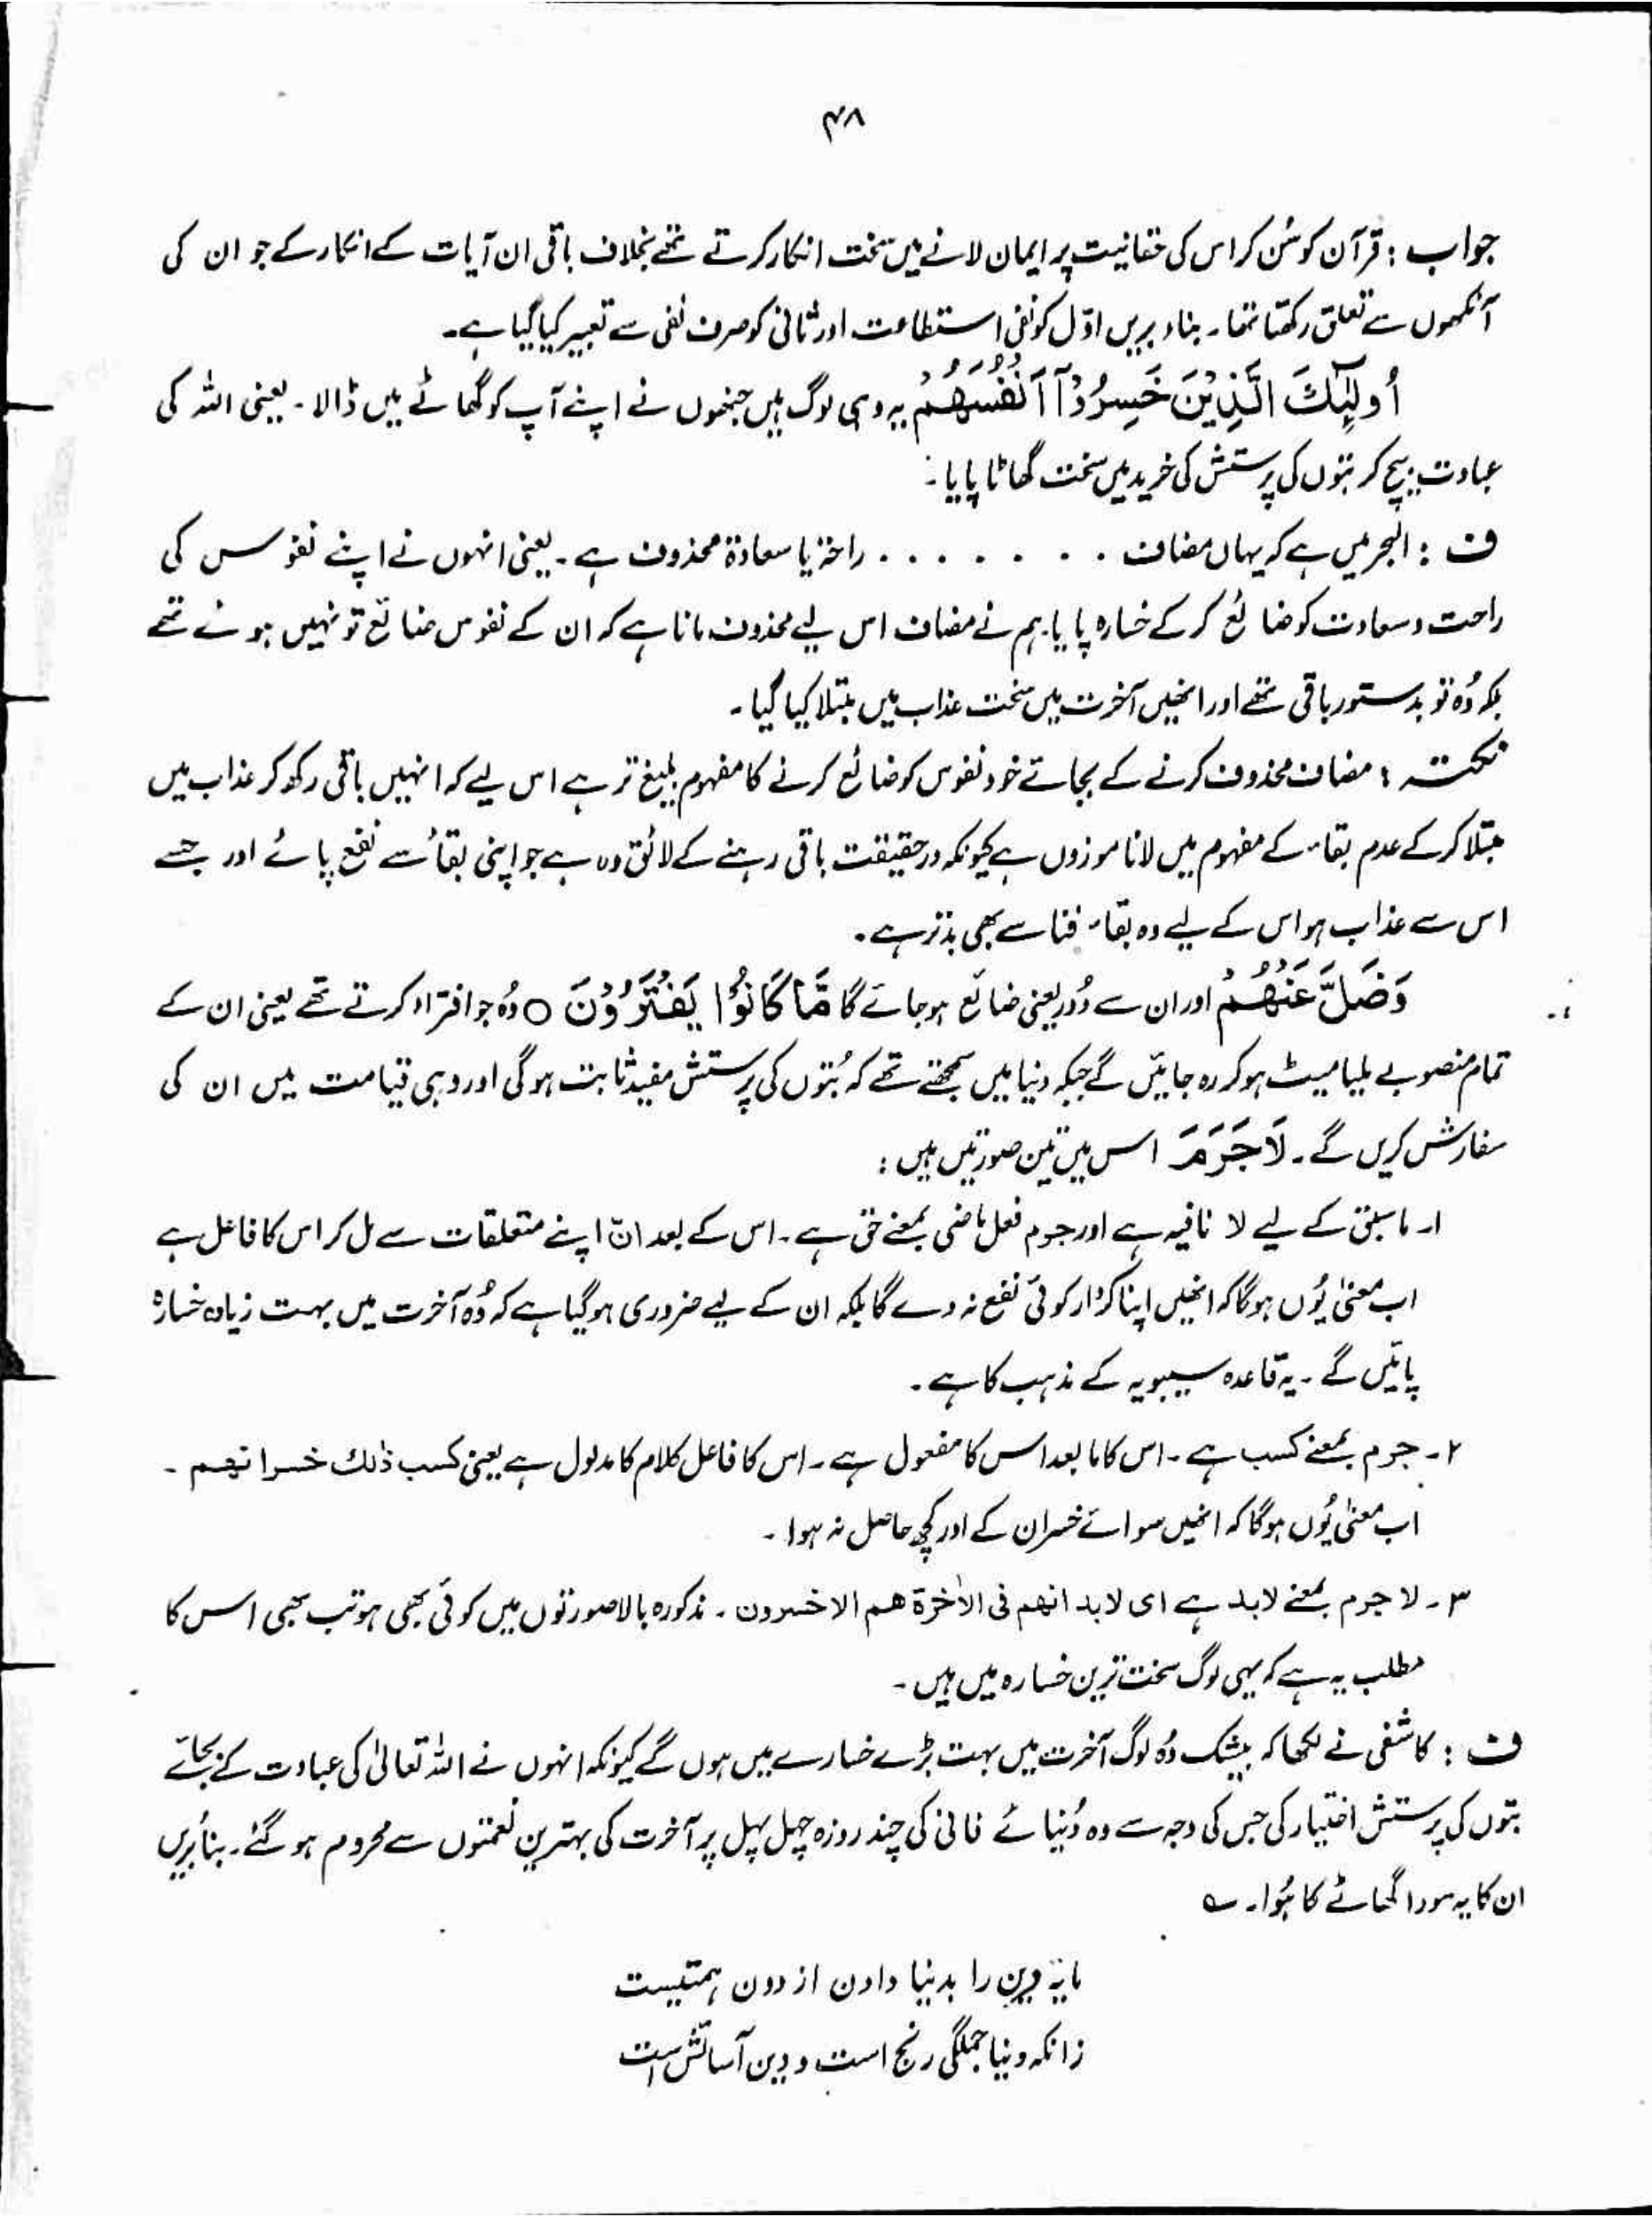 ۴۸
جواب : قرآن کو سُن کر اس کی حقانیت پر ایمان لانے میں سخت انکار کرتے تھے بخلاف باقی ان آیات کے انکار کے جو ان کی
آنکھوں سے تعلق رکھتا تھا۔ بناء بریں اوّل کو نفی استطاعت اور ثانی کو صرف نفی سے تعبیر کیا گیا ہے۔
اُولٰٓئِكَ الَّذِیْنَ خَسِرُوْۤا اَنْفُسَهُمْ یہ وہی لوگ ہیں جنھوں نے اپنے آپ کو گھاٹے میں ڈالا۔ یعنی اللہ کی
عبادت بیچ کر بتوں کی پرستش کی خرید میں سخت گھاٹا پایا۔
ف : البحر میں ہے کہ یہاں مضاف . . . . . . . راحۃ یا سعادۃ محذوف ہے۔ یعنی انہوں نے اپنے نفوس کی
راحت و سعادت کو ضائع کر کے خسارہ پایا۔ ہم نے مضاف اس لیے محذوف مانا ہے کہ ان کے نفوس ضائع تو نہیں ہوئے تھے
بلکہ وُہ تو بدستور باقی تھے اور انھیں آخرت میں سخت عذاب میں مبتلا کیا گیا۔
نکتہ : مضاف محذوف کرنے کے بجائے خود نفوس کو ضائع کرنے کا مفہوم بلیغ تر ہے اس لیے کہ انہیں باقی رکھ کر عذاب میں
مبتلا کر کے عدم بقاء کے مفہوم میں لانا موزوں ہے کیونکہ درحقیقت باقی رہنے کے لائق وہ ہے جو اپنی بقأ سے نفع پائے اور جسے
اس سے عذاب ہو اس کے لیے وہ بقاء فنا سے بھی بدتر ہے۔
وَضَلَّ عَنْهُمْ اور ان سے دُور یعنی ضائع ہو جائے گا مَّا كَانُوْا یَفْتَرُوْنَ ○ وُہ جو افتراء کرتے تھے یعنی ان کے
تمام منصوبے ملیامیٹ ہو کر رہ جائیں گے جبکہ دنیا میں سمجھتے تھے کہ بُتوں کی پرستش مفید ثابت ہوگی اور وہی قیامت میں ان کی
سفارش کریں گے۔ لَاجَرَمَ اس میں تین صورتیں ہیں :
۱۔ ماسبق کے لیے لا نافیہ ہے اور جرم فعل ماضی بمعنے حق ہے۔ اس کے بعد انّ اپنے متعلقات سے مل کر اس کا فاعل ہے
اب معنیٰ یُوں ہوگا کہ انھیں اپنا کردار کوئی نفع نہ دے گا بلکہ ان کے لیے ضروری ہو گیا ہے کہ وُہ آخرت میں بہت زیادہ خسارہ
پائیں گے۔ یہ قاعدہ سیبویہ کے مذہب کا ہے۔
۲۔ جرم بمعنے کسب ہے۔ اس کا مابعد اس کا مفعول ہے۔ اس کا فاعل کلام کا مدلول ہے یعنی کسب ذٰلك خسرانهم۔
اب معنیٰ یُوں ہوگا کہ انھیں سوائے خسران کے اور کچھ حاصل نہ ہوا۔
۳۔ لا جرم بمعنے لابد ہے ای لابد انهم فی الاٰخرۃ هم الاخسرون۔ مذکورہ بالا صورتوں میں کوئی بھی ہو تب بھی اس کا
مطلب یہ ہے کہ یہی لوگ سخت ترین خسارہ میں ہیں۔
ف : کاشفی نے لکھا کہ بیشک وُہ لوگ آخرت میں بہت بڑے خسارے میں ہوں گے کیونکہ انہوں نے اللہ تعالیٰ کی عبادت کے بجائے
بتوں کی پرستش اختیار کی جس کی وجہ سے وہ دُنیائے فانی کی چند روزہ چہل پہل پر آخرت کی بہترین نعمتوں سے محروم ہو گئے۔ بنأبریں
ان کا یہ سودا گھاٹے کا ہُوا۔ ؎
مایۂ دین را بدنیا دادن از دون ہمتیست
زانکہ دنیا جملگی رنج است و دین آسائش است